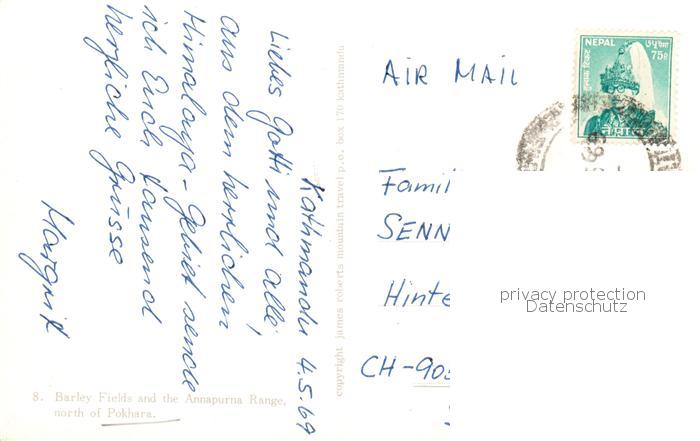 Kathmandu 4.5.69
Liebes Gotti und alle!
aus dem herrlichen
Himalaya-Gebiet sende
ich Euch tausend
herzliche Grüsse
Margrit
8. Barley Fields and the Annapurna Range,
north of Pokhara.
copyright james roberts mountain travel p.o. box 170 kathmandu
AIR MAIL
NEPAL
75P
नेपाल
Famil
SENN
Hinte
CH-905
privacy protection
Datenschutz